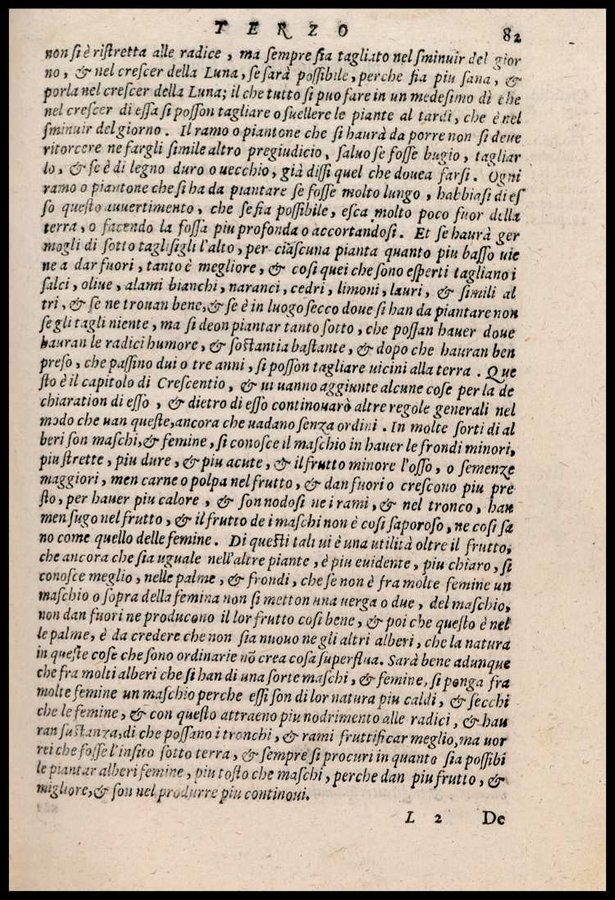 TERZO 82
non si è ristretta alle radice, ma sempre sia tagliato nel sminuir del gior
no, & nel crescer della Luna, se sarà possibile, perche sia piu sana, &
porla nel crescer della Luna; il che tutto si puo fare in un medesimo dì che
nel crescer di essa si posson tagliare o suellere le piante al tardi, che è nel
sminuir del giorno. Il ramo o piantone che si haurà da porre non si deue
ritorcere ne fargli simile altro pregiudicio, saluo se fosse bugio, tagliar
lo, & se è di legno duro o uecchio, già dissi quel che douea farsi. Ogni
ramo o piantone che si ha da piantare se fosse molto lungo, habbiasi di es
so questo auuertimento, che se sia possibile, esca molto poco fuor della
terra, o facendo la fossa piu profonda o accortandosi. Et se haurà ger
mogli di sotto taglisigli l'alto, per ciascuna pianta quanto piu basso uie
ne a dar fuori, tanto è megliore, & cosi quei che sono esperti tagliano i
salci, oliue, alami bianchi, naranci, cedri, limoni, lauri, & simili al
tri, & se ne trouan bene, & se è in luogo secco doue si han da piantare non
se gli tagli niente, ma si deon piantar tanto sotto, che possan hauer doue
hauran le radici humore, & sostantia bastante, & dopo che hauran ben
preso, che passino dui o tre anni, si posson tagliare uicini alla terra. Que
sto è il capitolo di Crescentio, & ui uanno aggiunte alcune cose per la de
chiaration di esso, & dietro di esso continouarò altre regole generali nel
modo che uan queste, ancora che uadano senza ordini. In molte sorti di al
beri son maschi, & femine, si conosce il maschio in hauer le frondi minori,
piu strette, piu dure, & piu acute, & il frutto minore l'osso, o semenze
maggiori, men carne o polpa nel frutto, & dan fuori o crescono piu pre
sto, per hauer piu calore, & son nodosi ne i rami, & nel tronco, han
men sugo nel frutto, & il frutto de i maschi non è cosi saporoso, ne cosi sa
no come quello delle femine. Di questi tali ui è una utilità oltre il frutto,
che ancora che sia uguale nell'altre piante, è piu euidente, piu chiaro, si
conosce meglio, nelle palme, & frondi, che se non è fra molte femine un
maschio o sopra della femina non si metton una uerga o due, del maschio,
non dan fuori ne producono il lor frutto cosi bene, & poi che questo è nel
le palme, è da credere che non sia nuouo ne gli altri alberi, che la natura
in queste cose che sono ordinarie nõ crea cosa superflua. Sarà bene adunque
che fra molti alberi che si han di una sorte maschi, & femine, si ponga fra
molte femine un maschio perche essi son di lor natura piu caldi, & secchi
che le femine, & con questo attraeno piu nodrimento alle radici, & hau
ran sustanza, di che possano i tronchi, & rami fruttificar meglio, ma uor
rei che fosse l'insito sotto terra, & sempre si procuri in quanto sia possibi
le piantar alberi femine, piu tosto che maschi, perche dan piu frutto, &
migliore, & son nel produrre piu continoui.
L 2 De